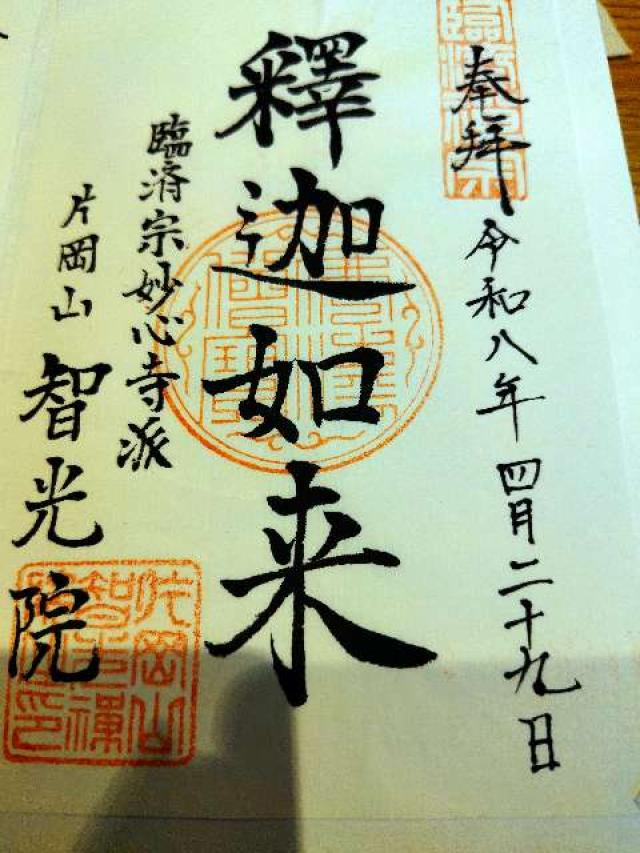 奉拝
令和八年四月二十九日
釋迦如来
臨済宗妙心寺派
片岡山
智光院